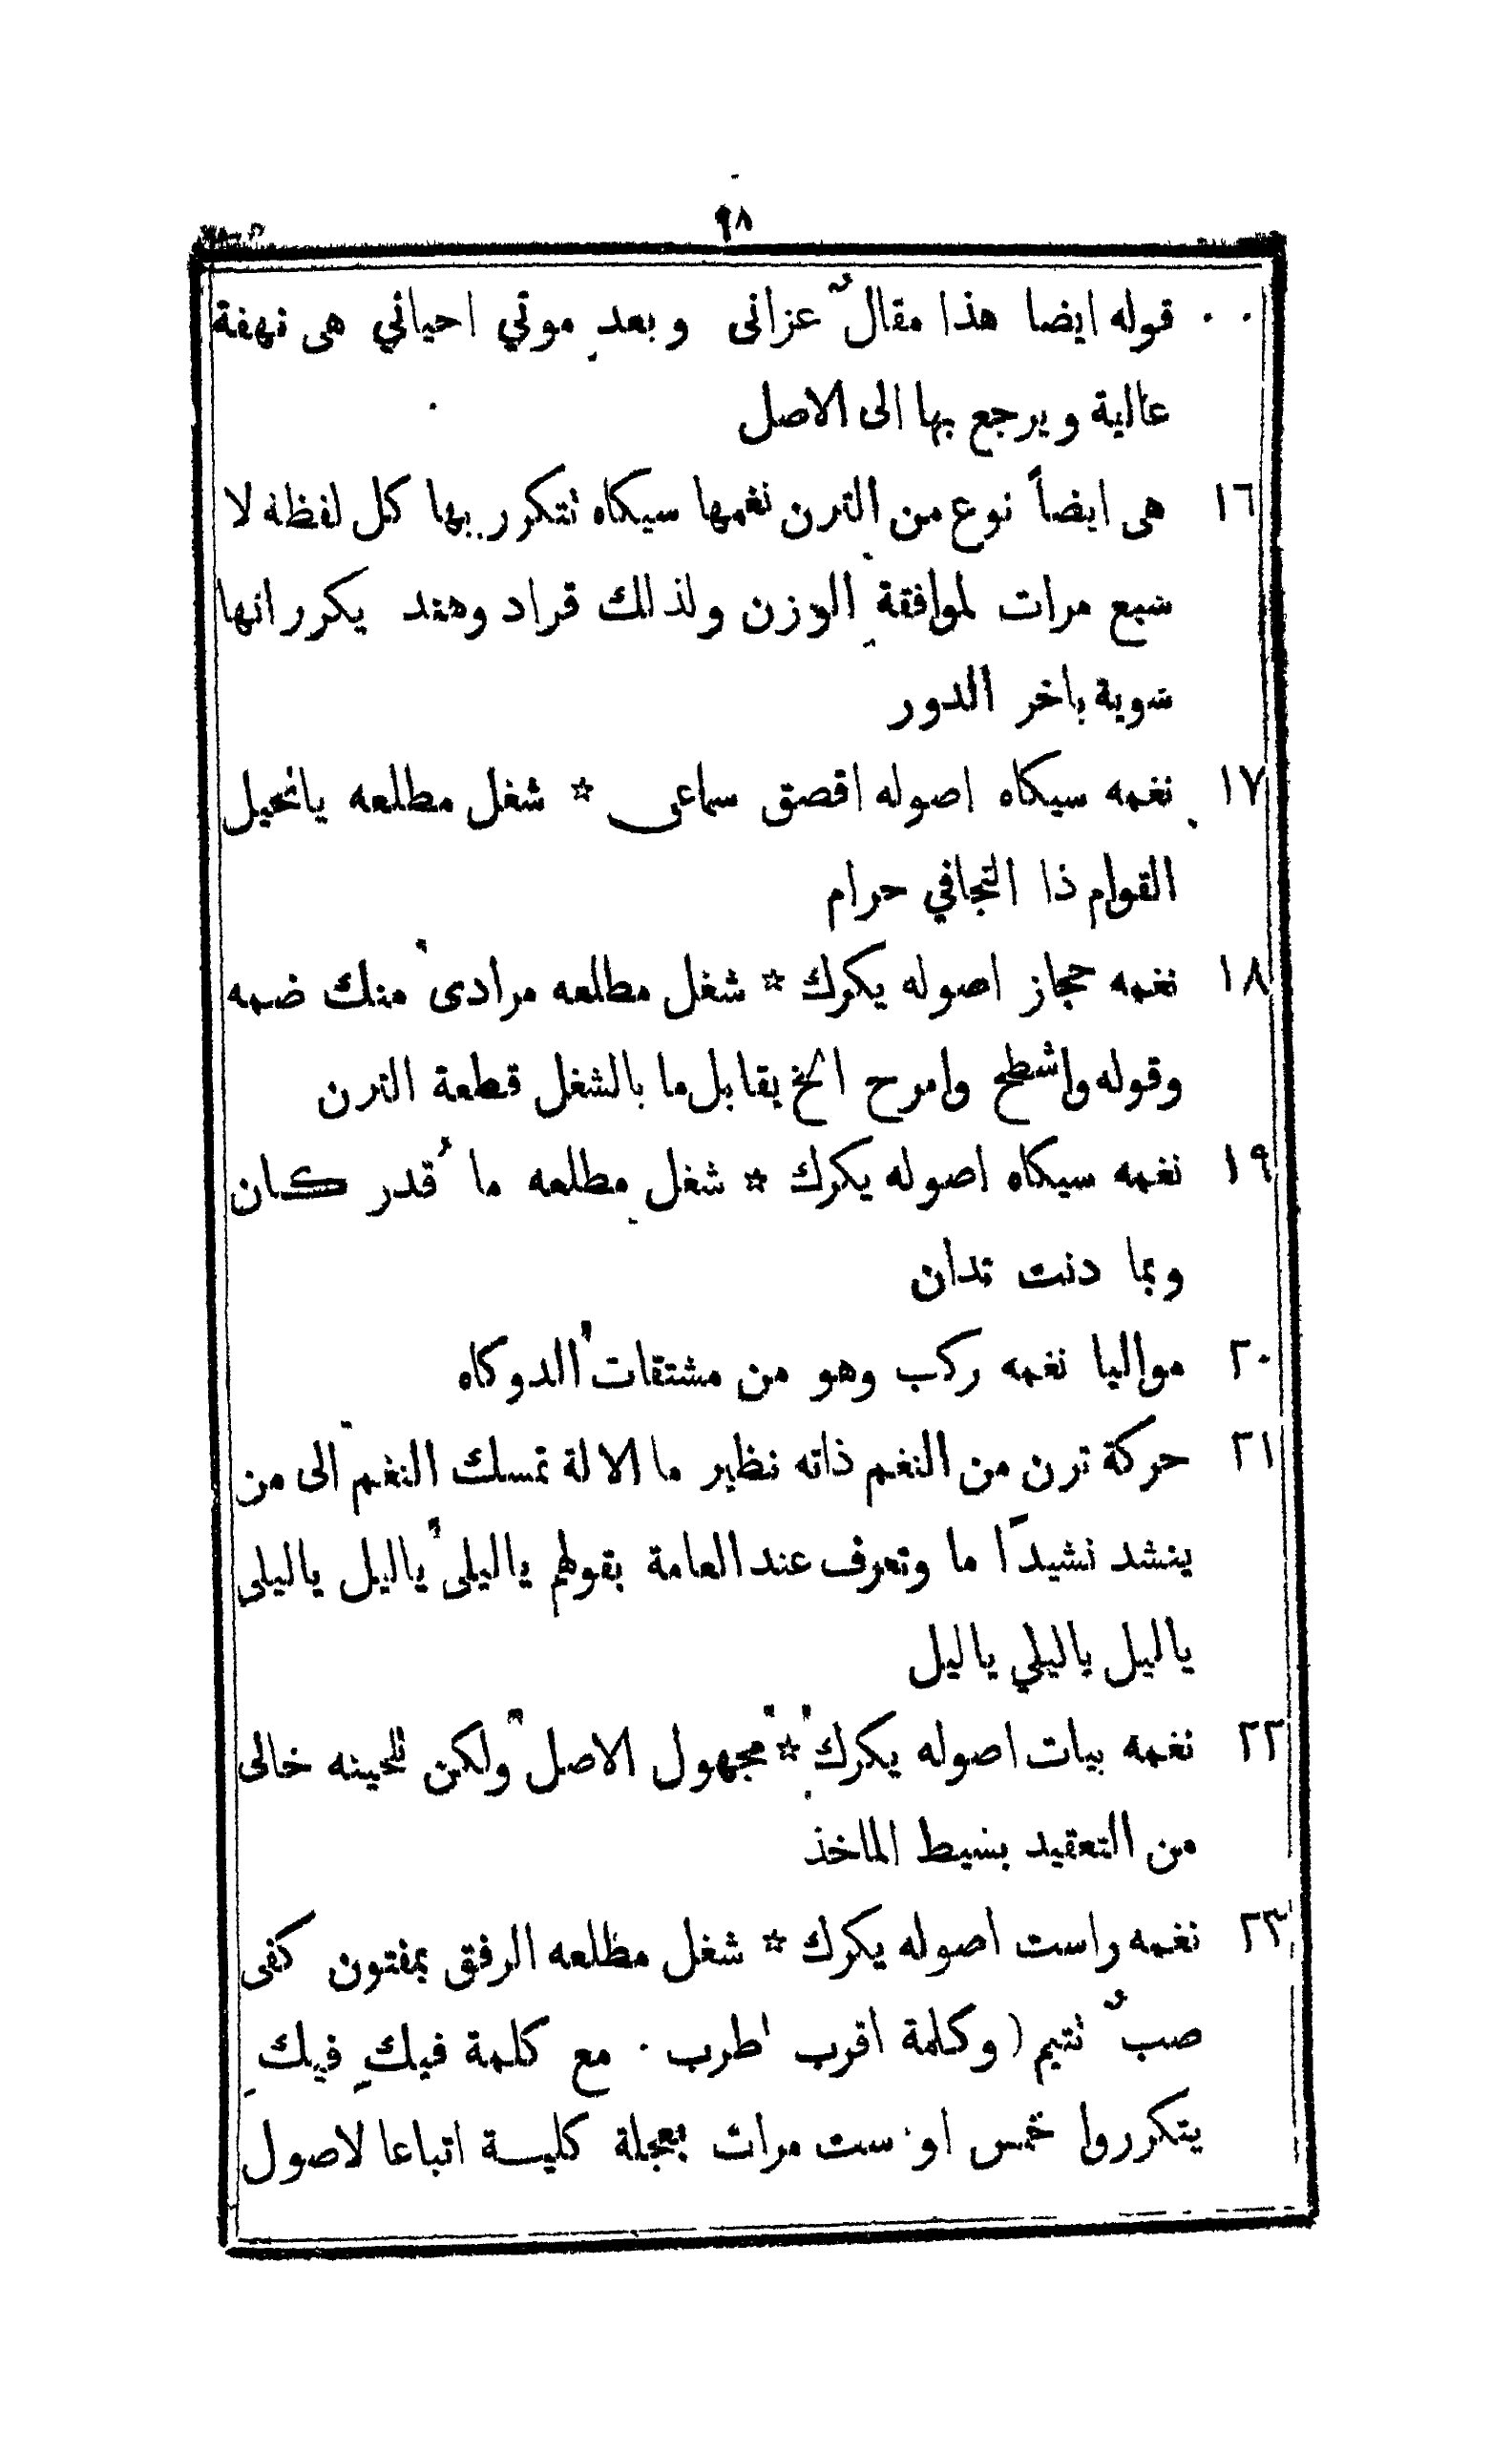 ٩٨
٠٠ قوله ايضا هذا مقالٌ عزانى وبعد موتي احياني هى نهفة
عالية ويرجع بها الى الاصل
١٦ هى ايضاً نوع من الترن نغمها سيكاه تتكرر بها كل لفظة لا
سبع مرات لموافقة الوزن ولذلك قراد وهند يكررانها
سوية باخر الدور
١٧ نغمه سيكاه اصوله اقصق سماعى * شغل مطلعه يانحيل
القوام ذا التجافي حرام
١٨ نغمه حجاز اصوله يكرك * شغل مطلعه مرادى منك ضمه
وقوله واشطح وامرح الخ يقابل ما بالشغل قطعة الترن
١٩ نغمه سيكاه اصوله يكرك * شغل مطلعه ما قدر كان
وبما دنت تدان
٢٠ مواليا نغمه ركب وهو من مشتقات الدوكاه
٢١ حركة ترن من النغم ذاته نظير ما الالة تمسك النغم الى من
ينشد نشيدًا ما وتعرف عند العامة بقولهم ياليلى ياليل ياليلى
ياليل ياليلي ياليل
٢٢ نغمه بيات اصوله يكرك * مجهول الاصل ولكن تلحينه خالى
من التعقيد بسيط الماخذ
٢٣ نغمه راست اصوله يكرك * شغل مطلعه الرفق بمفتون كفى
صبٌ تتيم (وكلمة اقرب اطرب ٠ مع كلمة فيك فيك
يتكرروا خمس او ست مرات بعجلة كليسة اتباعا لاصول